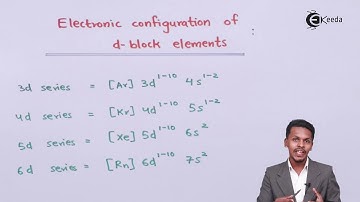 Ekeeda
Electronic configuration of
d-block elements :
3d series = [Ar] 3d¹⁻¹⁰ 4s¹⁻²
4d series = [Kr] 4d¹⁻¹⁰ 5s¹⁻²
5d series = [Xe] 5d¹⁻¹⁰ 6s²
6d series = [Rn] 6d¹⁻¹⁰ 7s²